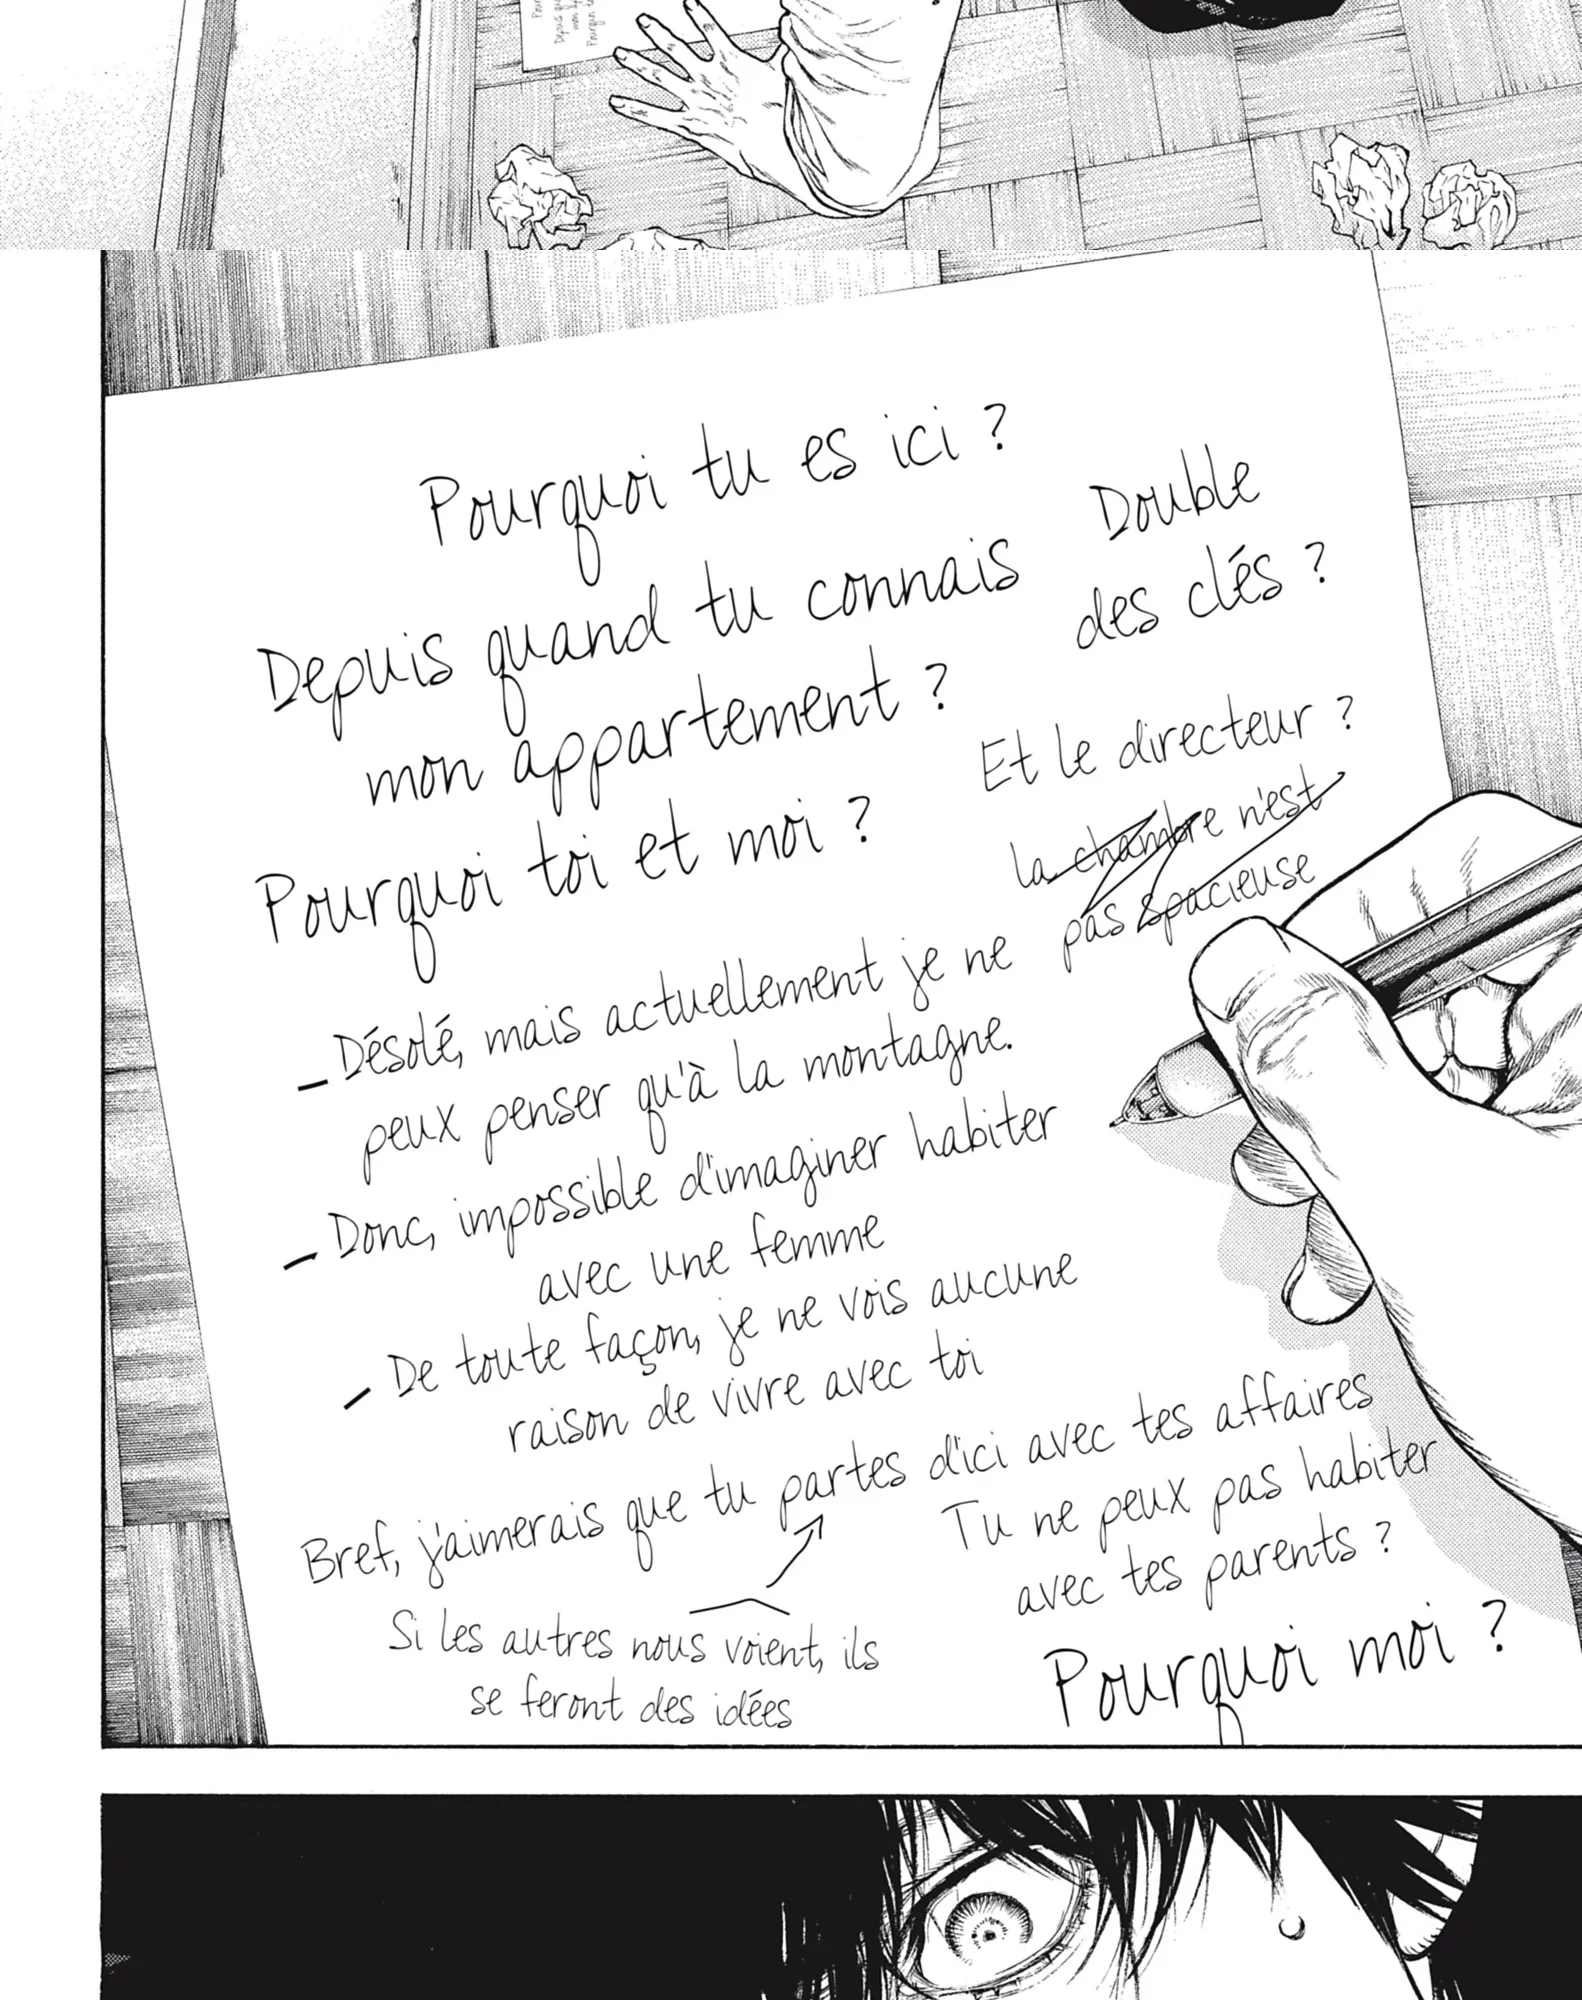 Pourquoi tu es ici ?
Depuis quand tu connais
mon appartement ?
Double
des clés ?
Pourquoi toi et moi ?
Et le directeur ?
la chambre n'est
pas spacieuse
– Désolé, mais actuellement je ne
peux penser qu'à la montagne.
– Donc, impossible d'imaginer habiter
avec une femme
– De toute façon, je ne vois aucune
raison de vivre avec toi
Bref, j'aimerais que tu partes d'ici avec tes affaires
Si les autres nous voient, ils
se feront des idées
Tu ne peux pas habiter
avec tes parents ?
Pourquoi moi ?